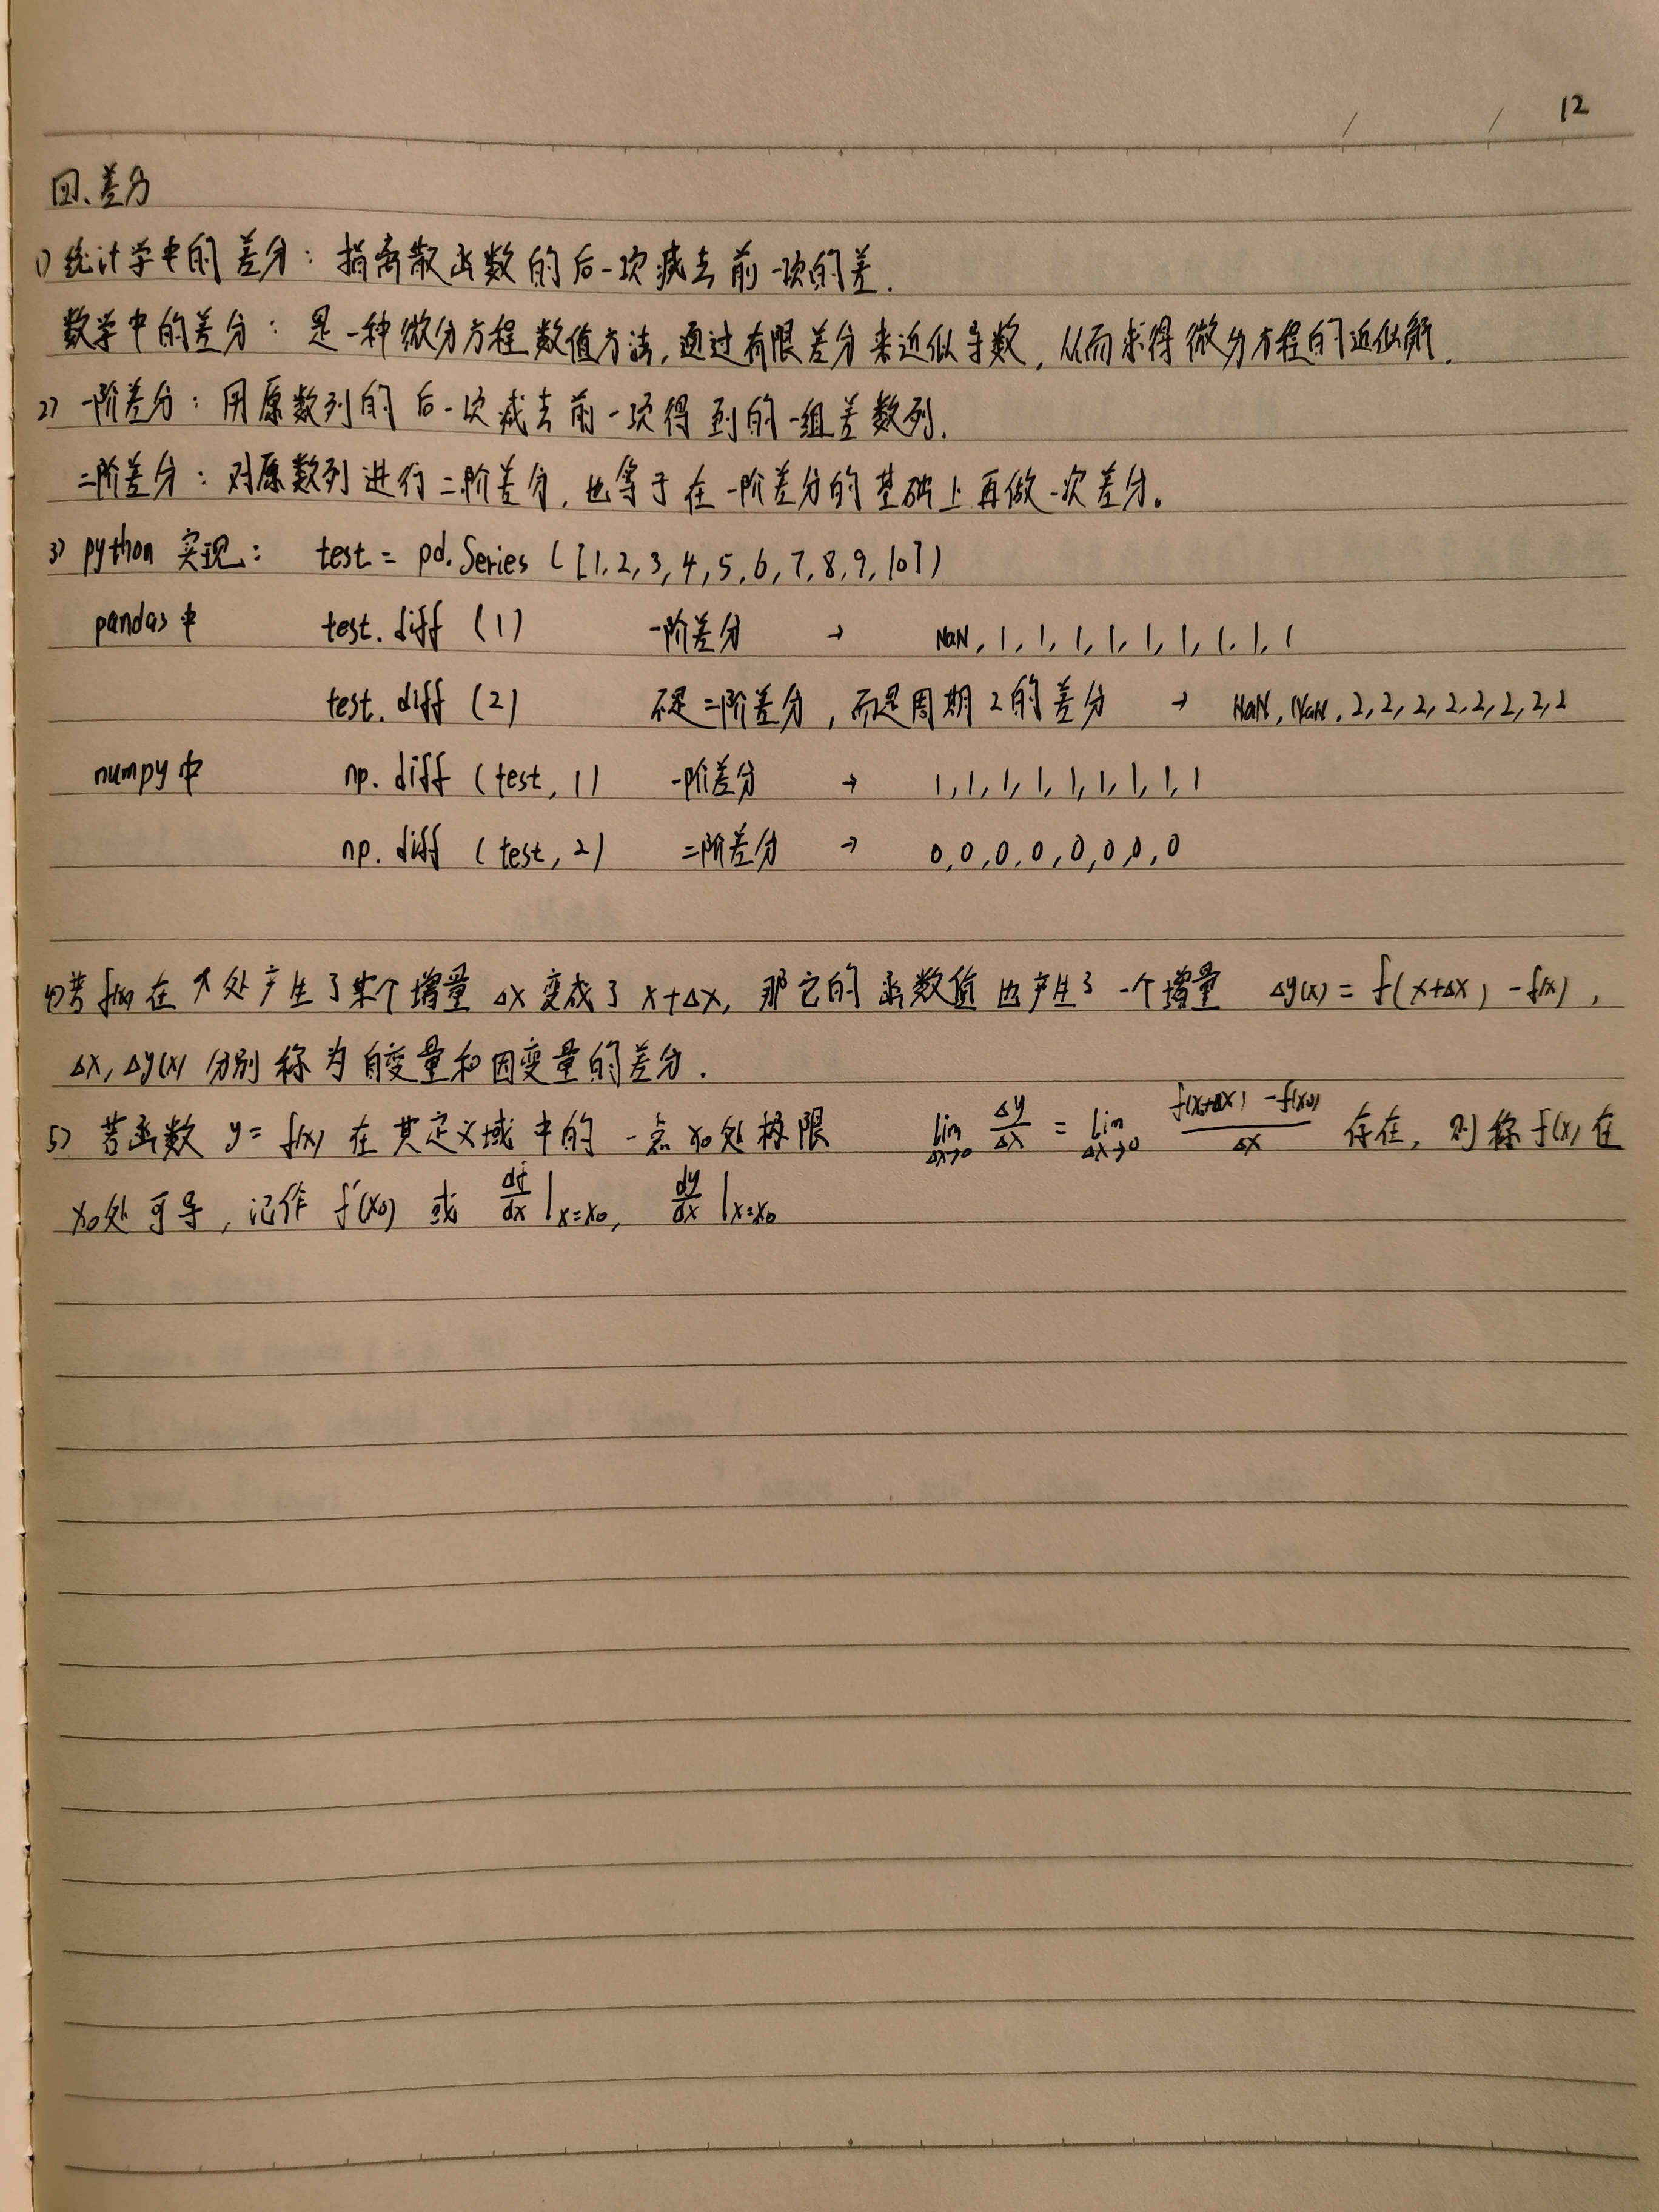 12
四、差分
1) 统计学中的差分：指离散函数的后一次减去前一项的差.
数学中的差分：是一种微分方程数值方法,通过有限差分来近似导数,从而求得微分方程的近似解.
2) 一阶差分：用原数列的后一次减去前一项得到的一组差数列.
二阶差分：对原数列进行二阶差分,也等于在一阶差分的基础上再做一次差分。
3) python 实现： test = pd.Series ([1,2,3,4,5,6,7,8,9,10])
pandas中 test.diff (1) 一阶差分 → NaN,1,1,1,1,1,1,1,1,1
test.diff (2) 不是二阶差分,而是周期2的差分 → NaN,NaN,2,2,2,2,2,2,2,2
numpy中 np.diff (test,1) 一阶差分 → 1,1,1,1,1,1,1,1,1
np.diff (test,2) 二阶差分 → 0,0,0,0,0,0,0,0
4)若f(x)在x处产生了某个增量 Δx 变成了 x+Δx, 那它的函数值也产生了一个增量 Δy(x) = f(x+Δx) - f(x),
Δx, Δy(x) 分别称为自变量和因变量的差分.
5) 若函数 y = f(x) 在其定义域中的一点x₀处极限 lim Δx→0 Δy/Δx = lim Δx→0 (f(x₀+Δx) - f(x₀))/Δx 存在, 则称f(x)在
x₀处可导,记作 f'(x₀) 或 df/dx |x=x₀, dy/dx |x=x₀